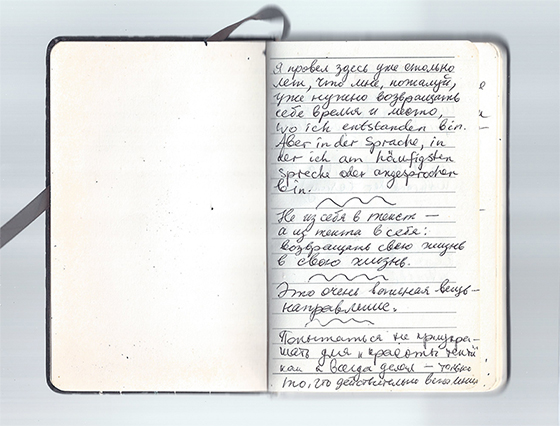 Я провел здесь уже столько
лет, что мне, пожалуй,
уже нужно возвращать
себе время и место,
wo ich entstanden bin.
Aber in der Sprache, in
der ich am häufigsten
spreche oder angesprochen
bin.
Не из себя в текст —
а из текста в себя:
возвращать свою жизнь
в свою жизнь.
Это очень важная вещь —
направление.
Попытаться не приукра-
шать для "красоты
как я всегда делал — только
то, что действительно